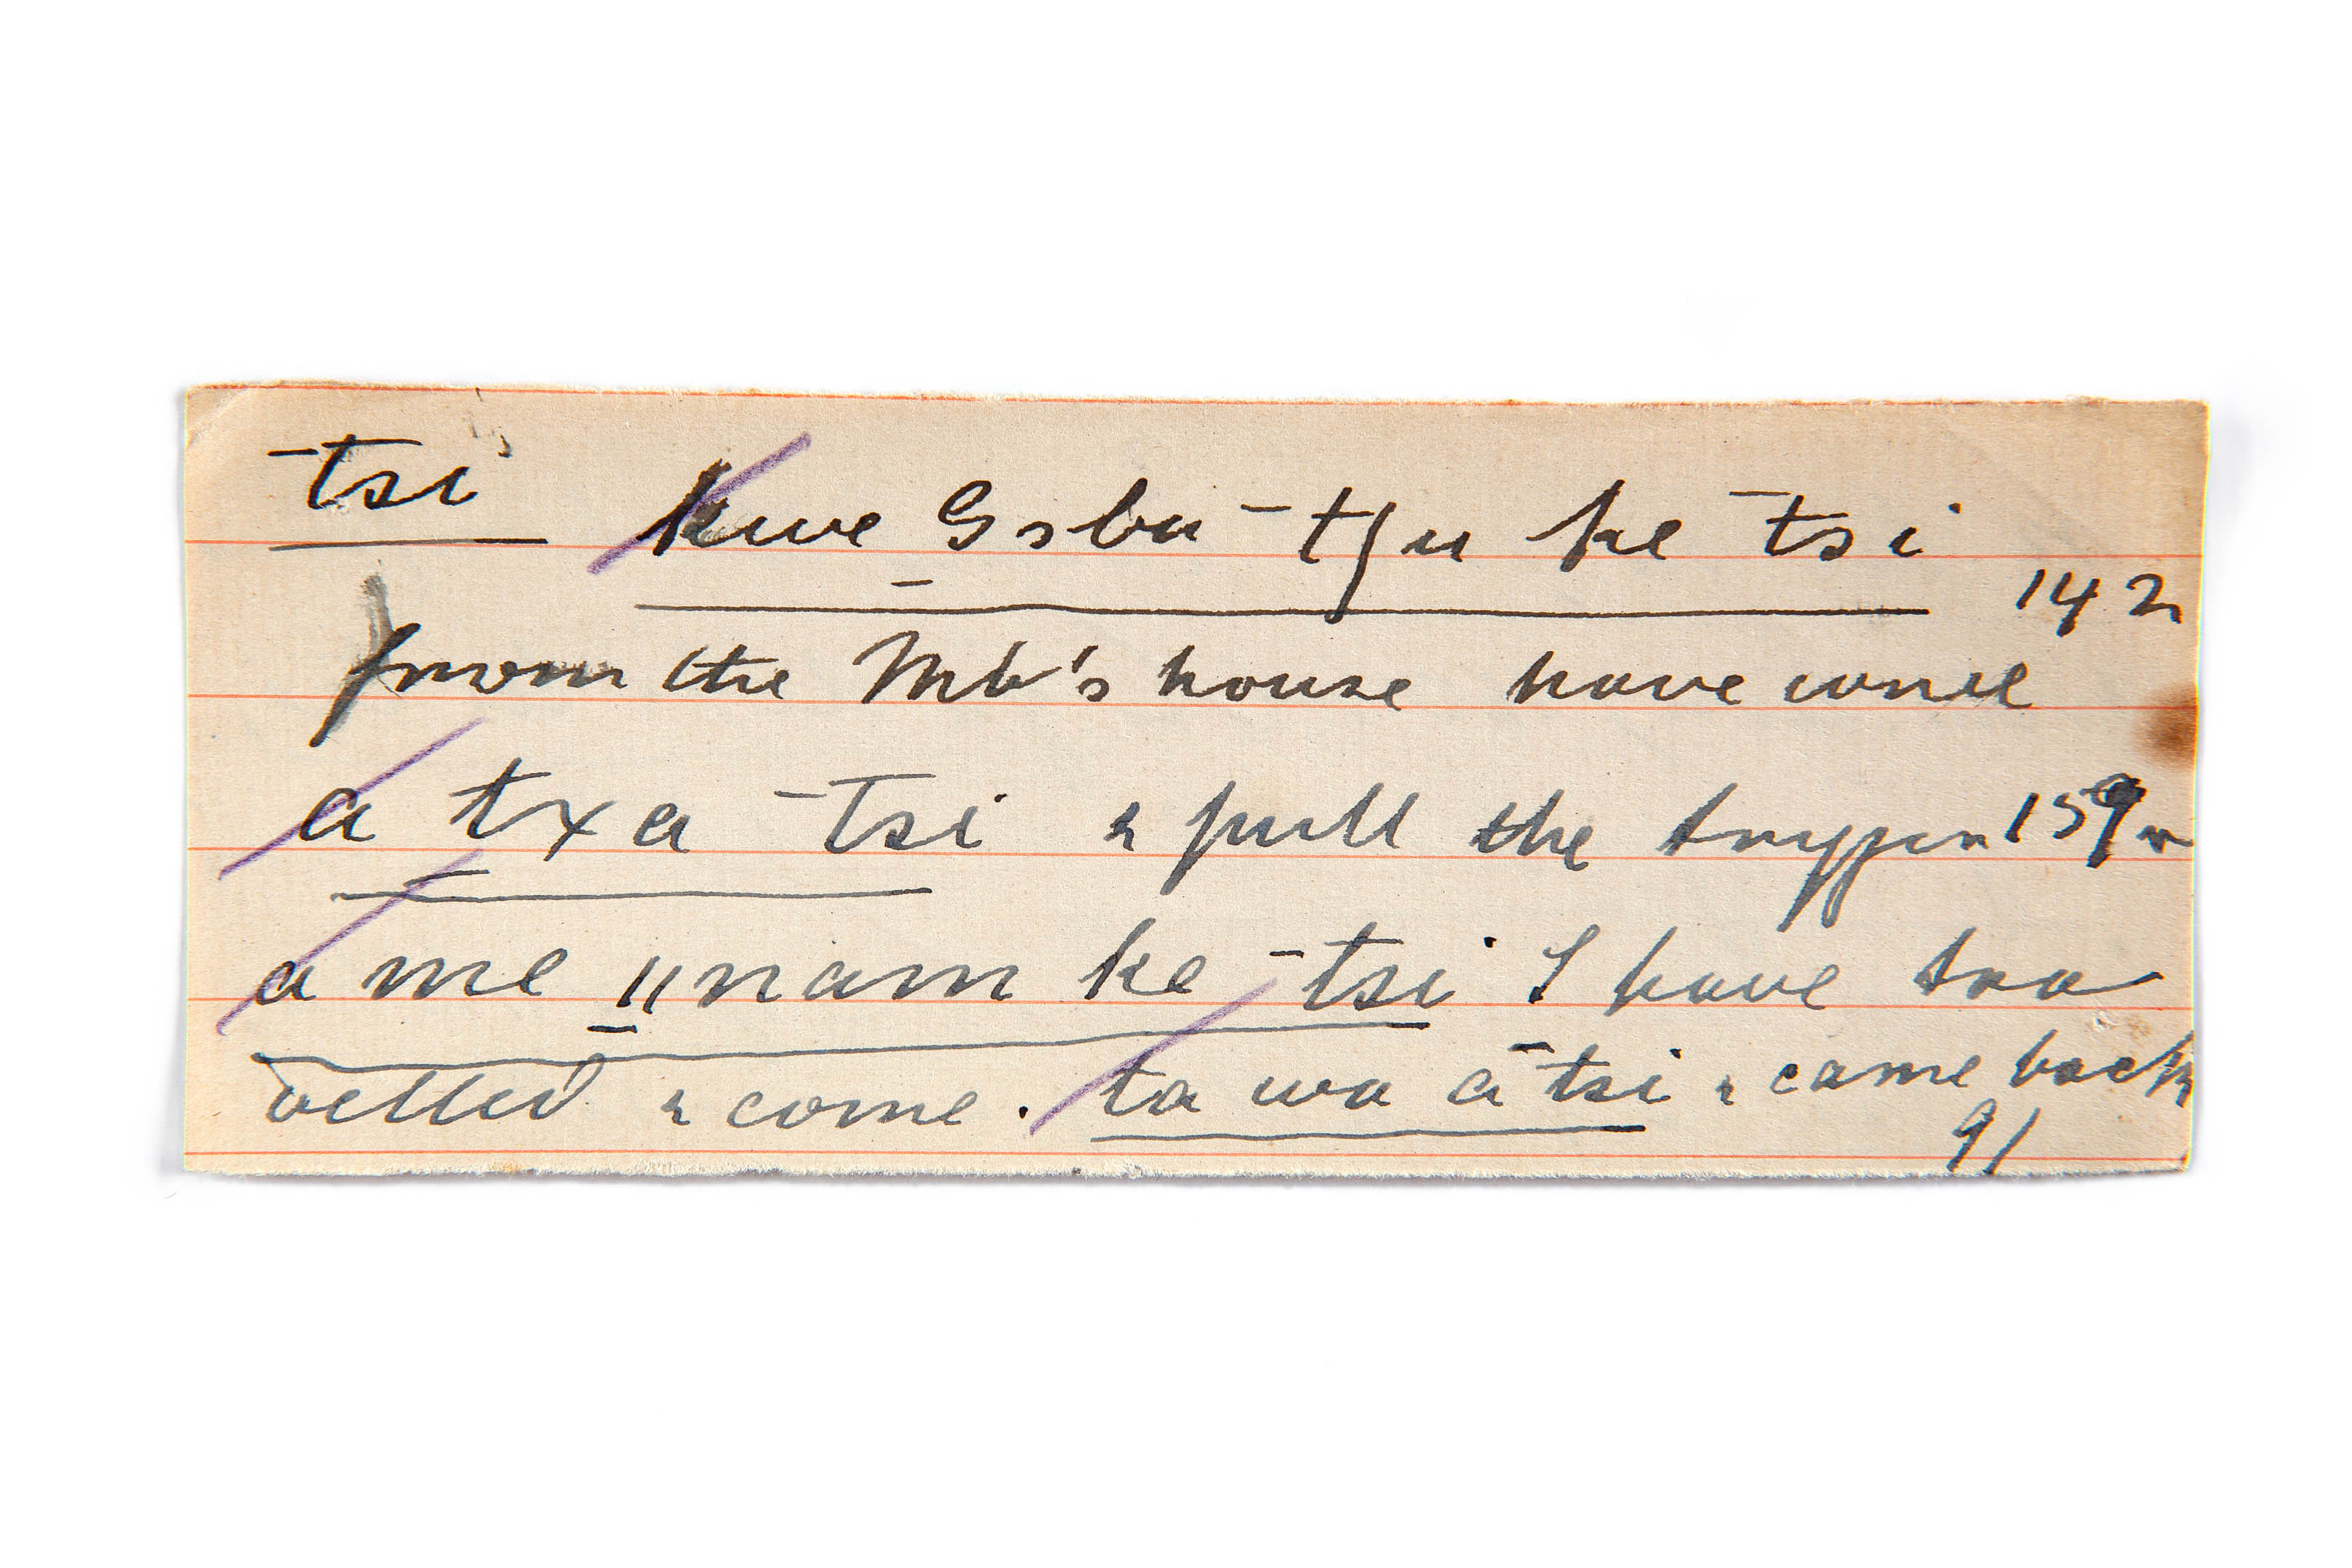 ‾tsi kwe Gsbu ‾tʃu ke ‾tsi 142
from the Mb's house have come
a txa ‾tsi & pull the 159
a me ǁnam ke ‾tsi I have tra
velled & come. ta wa a ‾tsi & came back
91